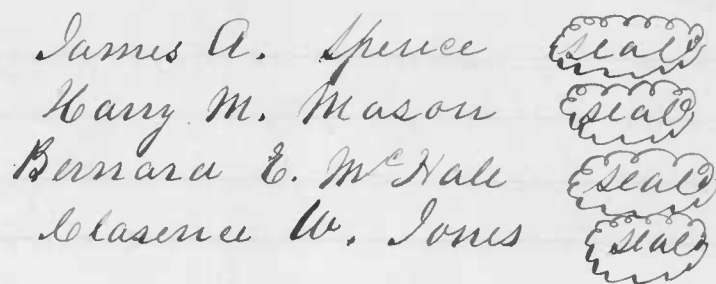 James A. Spence seal
Harry M. Mason seal
Bernard E. McHale seal
Clarence W. Jones seal